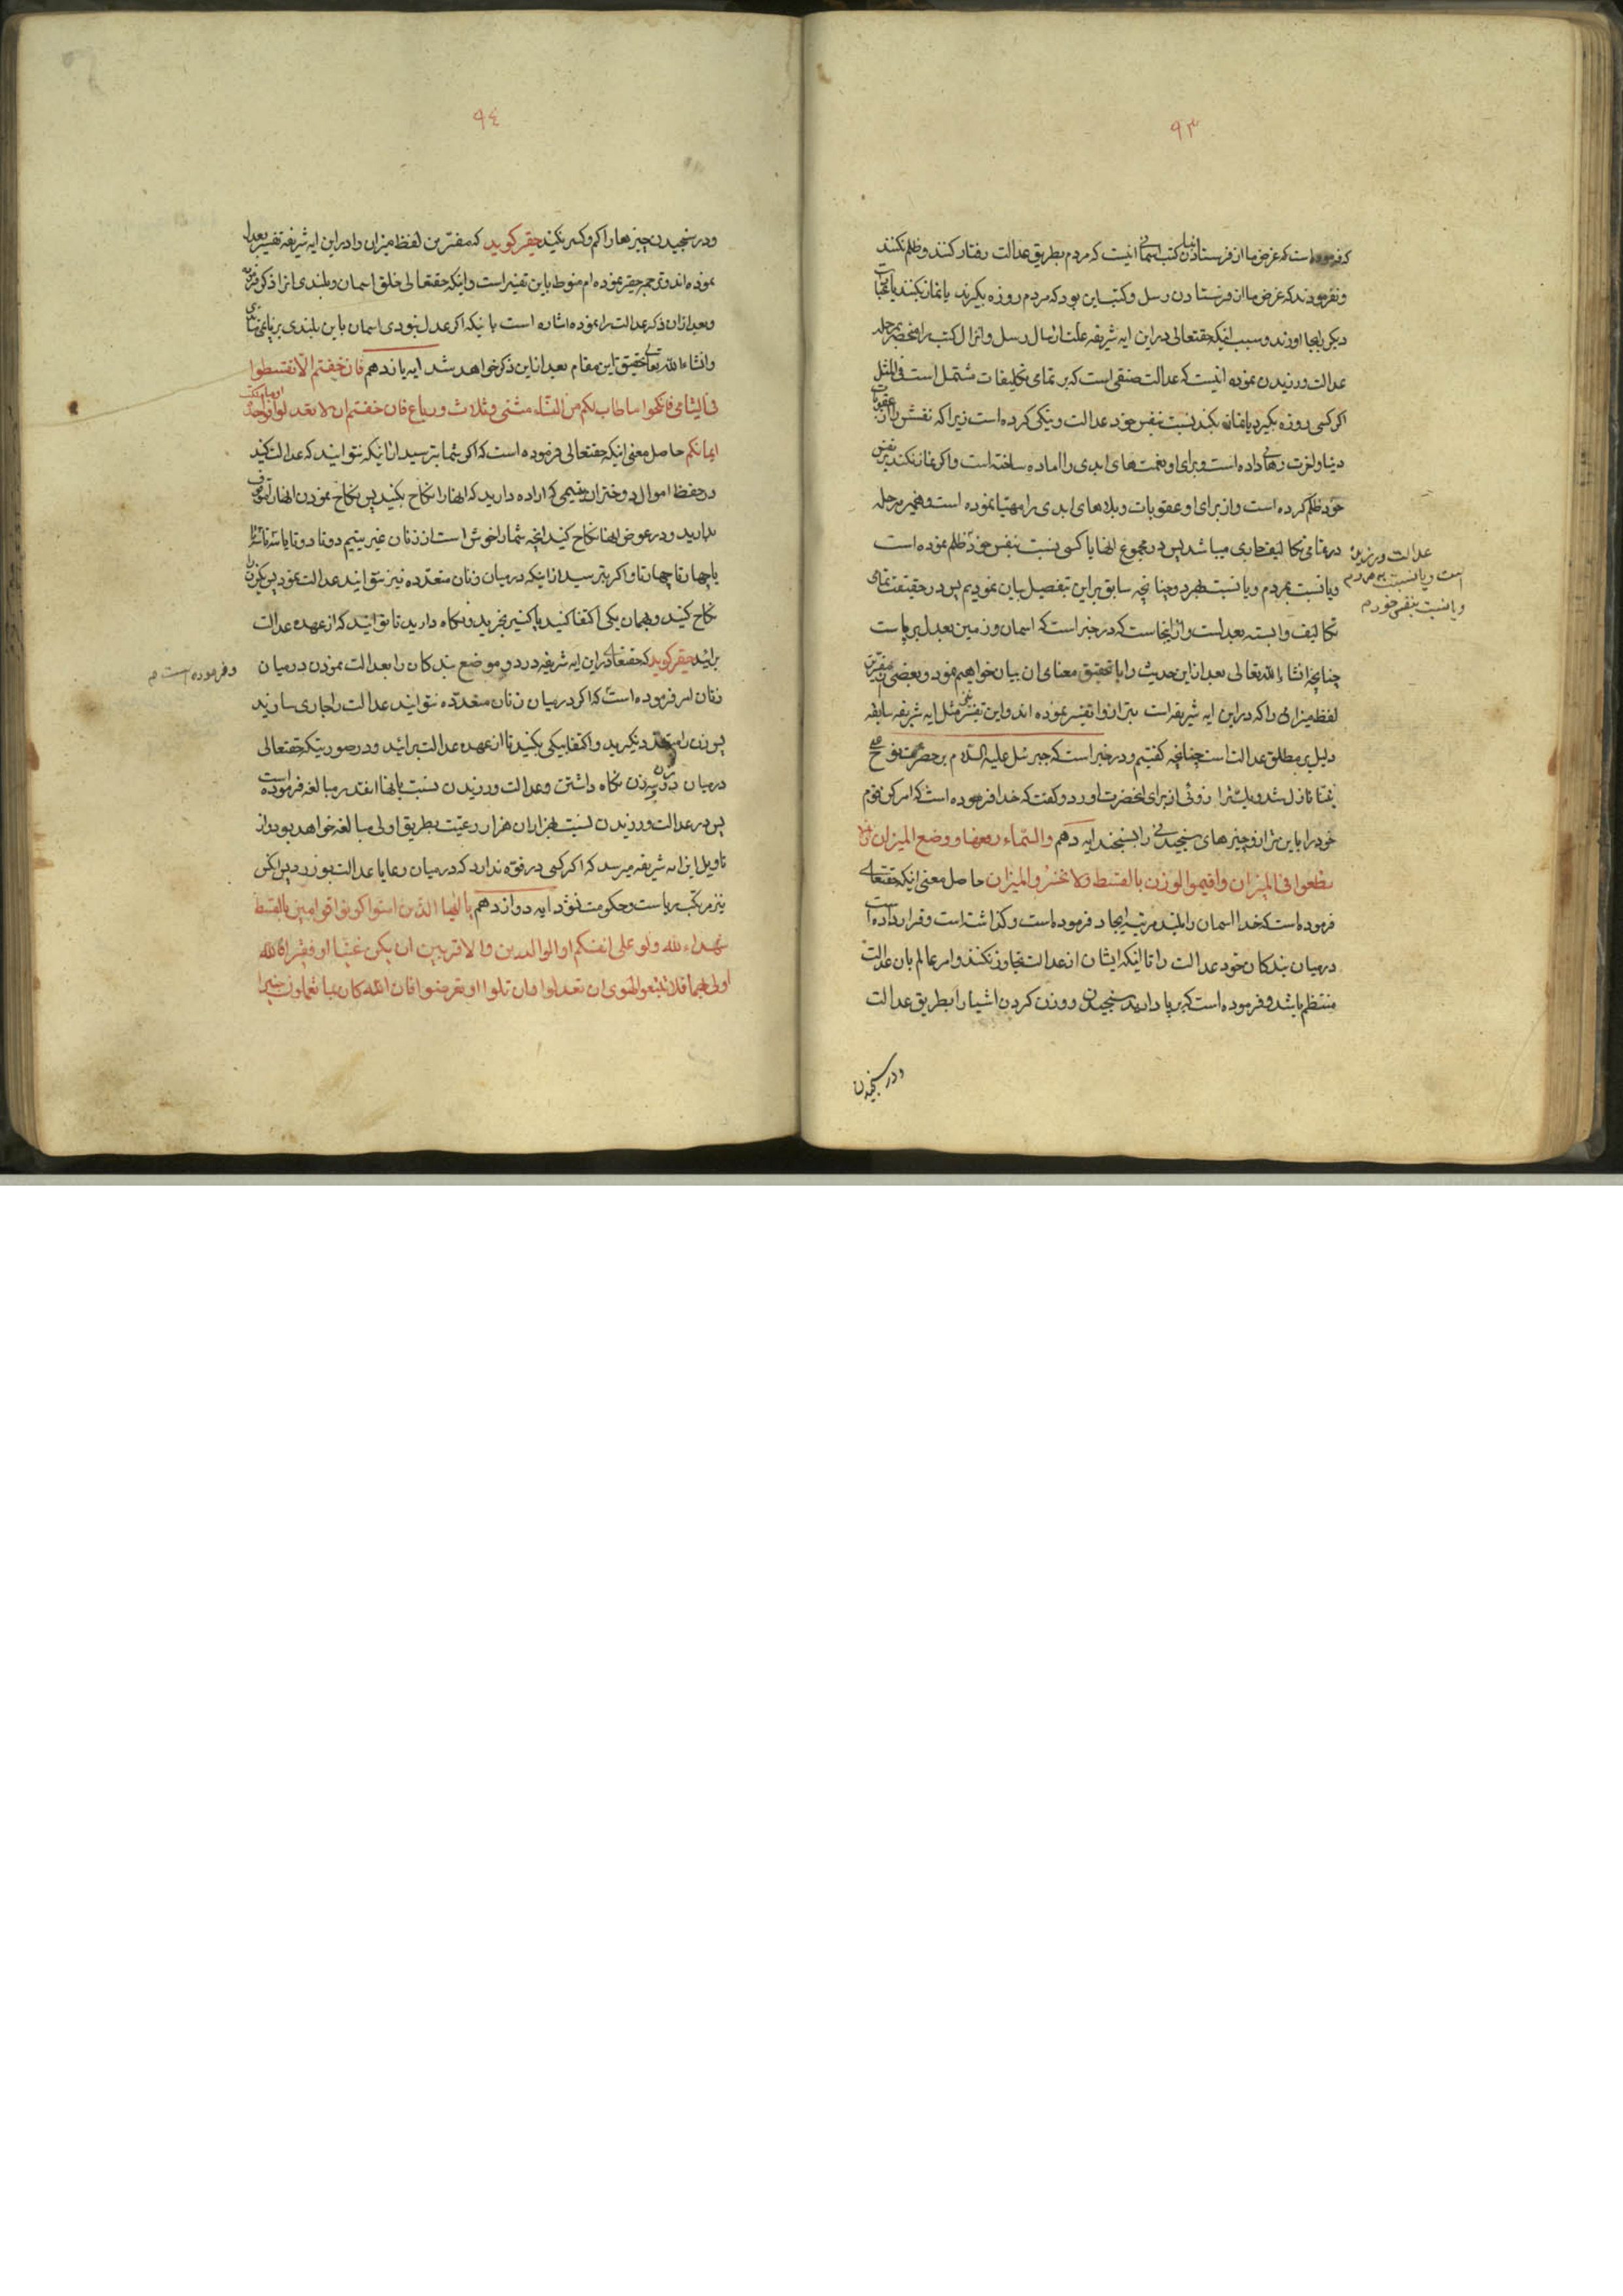 ٩٣
که فرموده است که غرض ما از فرستادن انبیا و کتب اسمانی اینست که مردم بطریق عدالت رفتار کنند و ظلم نکنند
و نفرمودند که غرض ما از فرستادن رسل و کتب این بود که مردم روزه بگیرند یا نماز بکنند یا
دیگر بجا اورند و سبب اینکه حقتعالی در این ایه شریفه علت ارسال رسل و انزال کتب را منحصر بر جمله
عدالت ورزیدن نموده اینست که عدالت صنفی است که بر تمامی تکلیفات مشتمل است فی المثل
اگر کسی روزه بگیرد یا نماز بکند نسبت بنفس خود عدالت و نیکی کرده است زیرا که نفسش را از عقوبات
دنیا و اخرت رهائی داده است و برای او نعمت های ابدی را اماده ساخته است و اگر نماز نکند بر نفس
خود ظلم کرده است و از برای او عقوبات و بلاهای ابدی را مهیا نموده است و همچنین بر جمله
در تمامی تکالیف جاری میباشد پس در مجموع انها یا کسی نسبت بنفس خود ظلم نموده است
عدالت ورزیده
است و یا نسبت بمردم
و یا نسبت بنفس خود م
و یا نسبت بمردم و یا نسبت بهر دو چنانچه سابق بر این بتفصیل بیان نمودیم پس در حقیقت تمامی
تکالیف وابسته بعدلست و از اینجاست که در خبر است که اسمان و زمین بعدل برپاست
چنانچه انشاء الله تعالی بعد از این حدیث را با تحقیق معنای ان بیان خواهیم نمود و بعضی از مفسرین
لفظ میزانی را که در این ایه شریفه است بترازو تفسیر نموده اند و این تفسیر نیز مثل ایه شریفه سابقه
دلیل بر مطلق عدالت است چنانچه گفتیم و در خبر است که جبرئیل علیه السلام بر حضرت نوح
نبینا نازل شد و یک ترازوئی از برای انحضرت اورد و گفت که خدا فرموده است که امر کن بقوم
خود را باین ترازو چیزهای سنجیدنی را بسنجند ایه دهم والسماء رفعها و وضع المیزان الا
تطغوا فی المیزان واقیموا الوزن بالقسط ولا تخسروا المیزان حاصل معنی اینکه حقتعالی
فرموده است که خدا اسمان را بلند مرتبه ایجاد فرموده است و گذاشته است و قرار داده است
در میان بندگان خود عدالت را تا اینکه ایشان از عدالت تجاوز نکنند و امر عالم بان عدالت
منتظم باشد و فرموده است که برپا دارید سنجیدن و وزن کردن اشیا را بطریق عدالت
و در سنجیدن
٩٤
و در سنجیدن چیزها را کم و کسر نکنید حقیر گوید که مفسرین لفظ میزان را در این ایه شریفه تفسیر بعدل
نموده اند و ترجمه حقیر نموده ام منوط باین تفسیر است و اینکه حقتعالی خلق اسمان و بلندی انرا ذکر فرموده
و بعد از ان ذکر عدالت را نموده اشاره است باینکه اگر عدل نبودی اسمان باین بلندی برپا نمی ماندی
وانشاء الله تعالی تحقیق این مقام بعد از این ذکر خواهد شد ایه یازدهم فان خفتم الا تقسطوا
فی الیتامی فانکحوا ما طاب لکم من النساء مثنی و ثلاث و رباع فان خفتم ان لا تعدلوا فواحدة او ما ملکت
ایمانکم حاصل معنی اینکه حقتعالی فرموده است که اگر شما بترسید از اینکه نتوانید که عدالت کنید
در حفظ اموال دختران یتیمی که اراده دارید که انها را نکاح بکنید پس نکاح نمودن انها را موقوف
بدارید و در عوض انها نکاح کنید انچه شما را خوش است از زنان غیر یتیم دو تا دو تا یا سه تا سه تا
یا چهار تا چهار تا و اگر بترسید از اینکه در میان زنان متعدده نیز نتوانید عدالت نمود پس یک زن
نکاح کنید و بهمان یکی اکتفا کنید یا کنیز بخرید و نگاه دارید تا توانید که از عهده عدالت
برائید حقیر گوید که حقتعالی در این ایه شریفه در دو موضع بندگان را بعدالت نمودن در میان
و فرموده است م
زنان امر فرموده است که اگر در میان زنان متعدده نتوانید عدالت را جاری سازید
پس زن را متعدد نگیرید و اکتفا بیکی بکنید تا از عهده عدالت برائید و در صورتیکه حقتعالی
در میان دو سه زن نگاه داشتن و عدالت ورزیدن نسبت بانها اینقدر مبالغه فرموده است
پس در عدالت ورزیدن نسبت بهزاران هزار رعیت بطریق اولی مبالغه خواهد بود و از
تاویل این ایه شریفه میرسد که اگر کسی در قوه ندارد که در میان رعایا عدالت بورزد پس انکس
نیز مرتکب ریاست و حکومت نشود ایه دوازدهم یا ایها الذین امنوا کونوا قوامین بالقسط
شهداء لله ولو علی انفسکم او الوالدین والاقربین ان یکن غنیا او فقیرا فالله
اولی بهما فلا تتبعوا الهوی ان تعدلوا وان تلوا او تعرضوا فان الله کان بما تعملون خبیرا